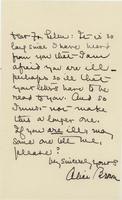 It is so
long since I have heard
from you that I am
afraid you are ill –
perhaps so ill that
your letters have to be
read to you. And so
I must not make
this a longer one.
If you are ill, may
some one tell me,
please?
Very sincerely yours
Alice